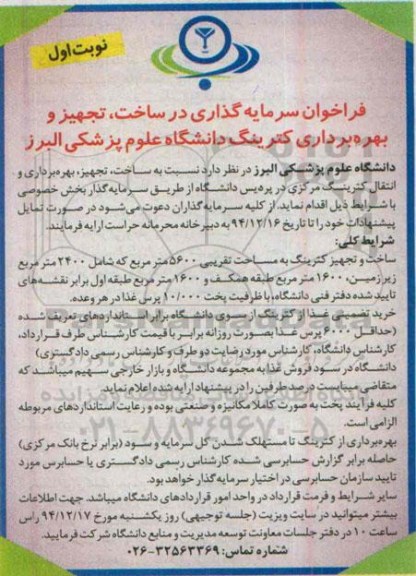 نوبت اول
فراخوان سرمایه گذاری در ساخت، تجهیز و
بهره‌برداری کترینگ دانشگاه علوم پزشکی البرز
دانشگاه علوم پزشکی البرز در نظر دارد نسبت به ساخت، تجهیز، بهره‌برداری و
انتقال کترینگ مرکزی در پردیس دانشگاه از طریق سرمایه‌گذار بخش خصوصی
با شرایط ذیل اقدام نماید. از کلیه سرمایه‌گذاران دعوت می‌شود در صورت تمایل
پیشنهادات خود را تا تاریخ ۹۴/۱۲/۱۶ به دبیرخانه محرمانه حراست ارایه فرمایند.
شرایط کلی:
ساخت و تجهیز کترینگ به مساحت تقریبی ۵۶۰۰ متر مربع که شامل ۲۴۰۰ متر مربع
زیرزمین، ۱۶۰۰ متر مربع طبقه همکف و ۱۶۰۰ متر مربع طبقه اول برابر نقشه‌های
تایید شده دفتر فنی دانشگاه، با ظرفیت پخت ۱۰/۰۰۰ پرس غذا در هر وعده.
خرید تضمینی غذا از کترینگ از سوی دانشگاه برابر استانداردهای تعریف شده
(حداقل ۶۰۰۰ پرس غذا بصورت روزانه برابر با قیمت کارشناس طرف قرارداد،
کارشناس دانشگاه، کارشناس مورد رضایت دو طرف و کارشناس رسمی دادگستری)
دانشگاه در سود فروش غذا به مجموعه دانشگاه و بازار خارجی سهیم میباشد که
متقاضی میبایست درصد طرفین را در پیشنهاد ارایه شده اعلام نماید.
کلیه فرآیند پخت به صورت کاملا مکانیزه و صنعتی بوده و رعایت استانداردهای مربوطه
الزامی است.
بهره‌برداری از کترینگ تا مستهلک شدن کل سرمایه و سود (برابر نرخ بانک مرکزی)
حاصله برابر گزارش حسابرسی شده کارشناس رسمی دادگستری یا حسابرس مورد
تایید سازمان حسابرسی در اختیار سرمایه‌گذار خواهد بود.
سایر شرایط و فرمت قرارداد در واحد امور قراردادهای دانشگاه میباشد. جهت اطلاعات
بیشتر میتوانید در سایت ویزیت (جلسه توجیهی) روز یکشنبه مورخ ۹۴/۱۲/۱۷ راس
ساعت ۱۰ در دفتر جلسات معاونت توسعه مدیریت و منابع دانشگاه شرکت فرمایید.
شماره تماس: ۳۲۵۶۳۳۶۹-۰۲۶
۰۲۱-۸۸۳۴۹۶۷۰-۵